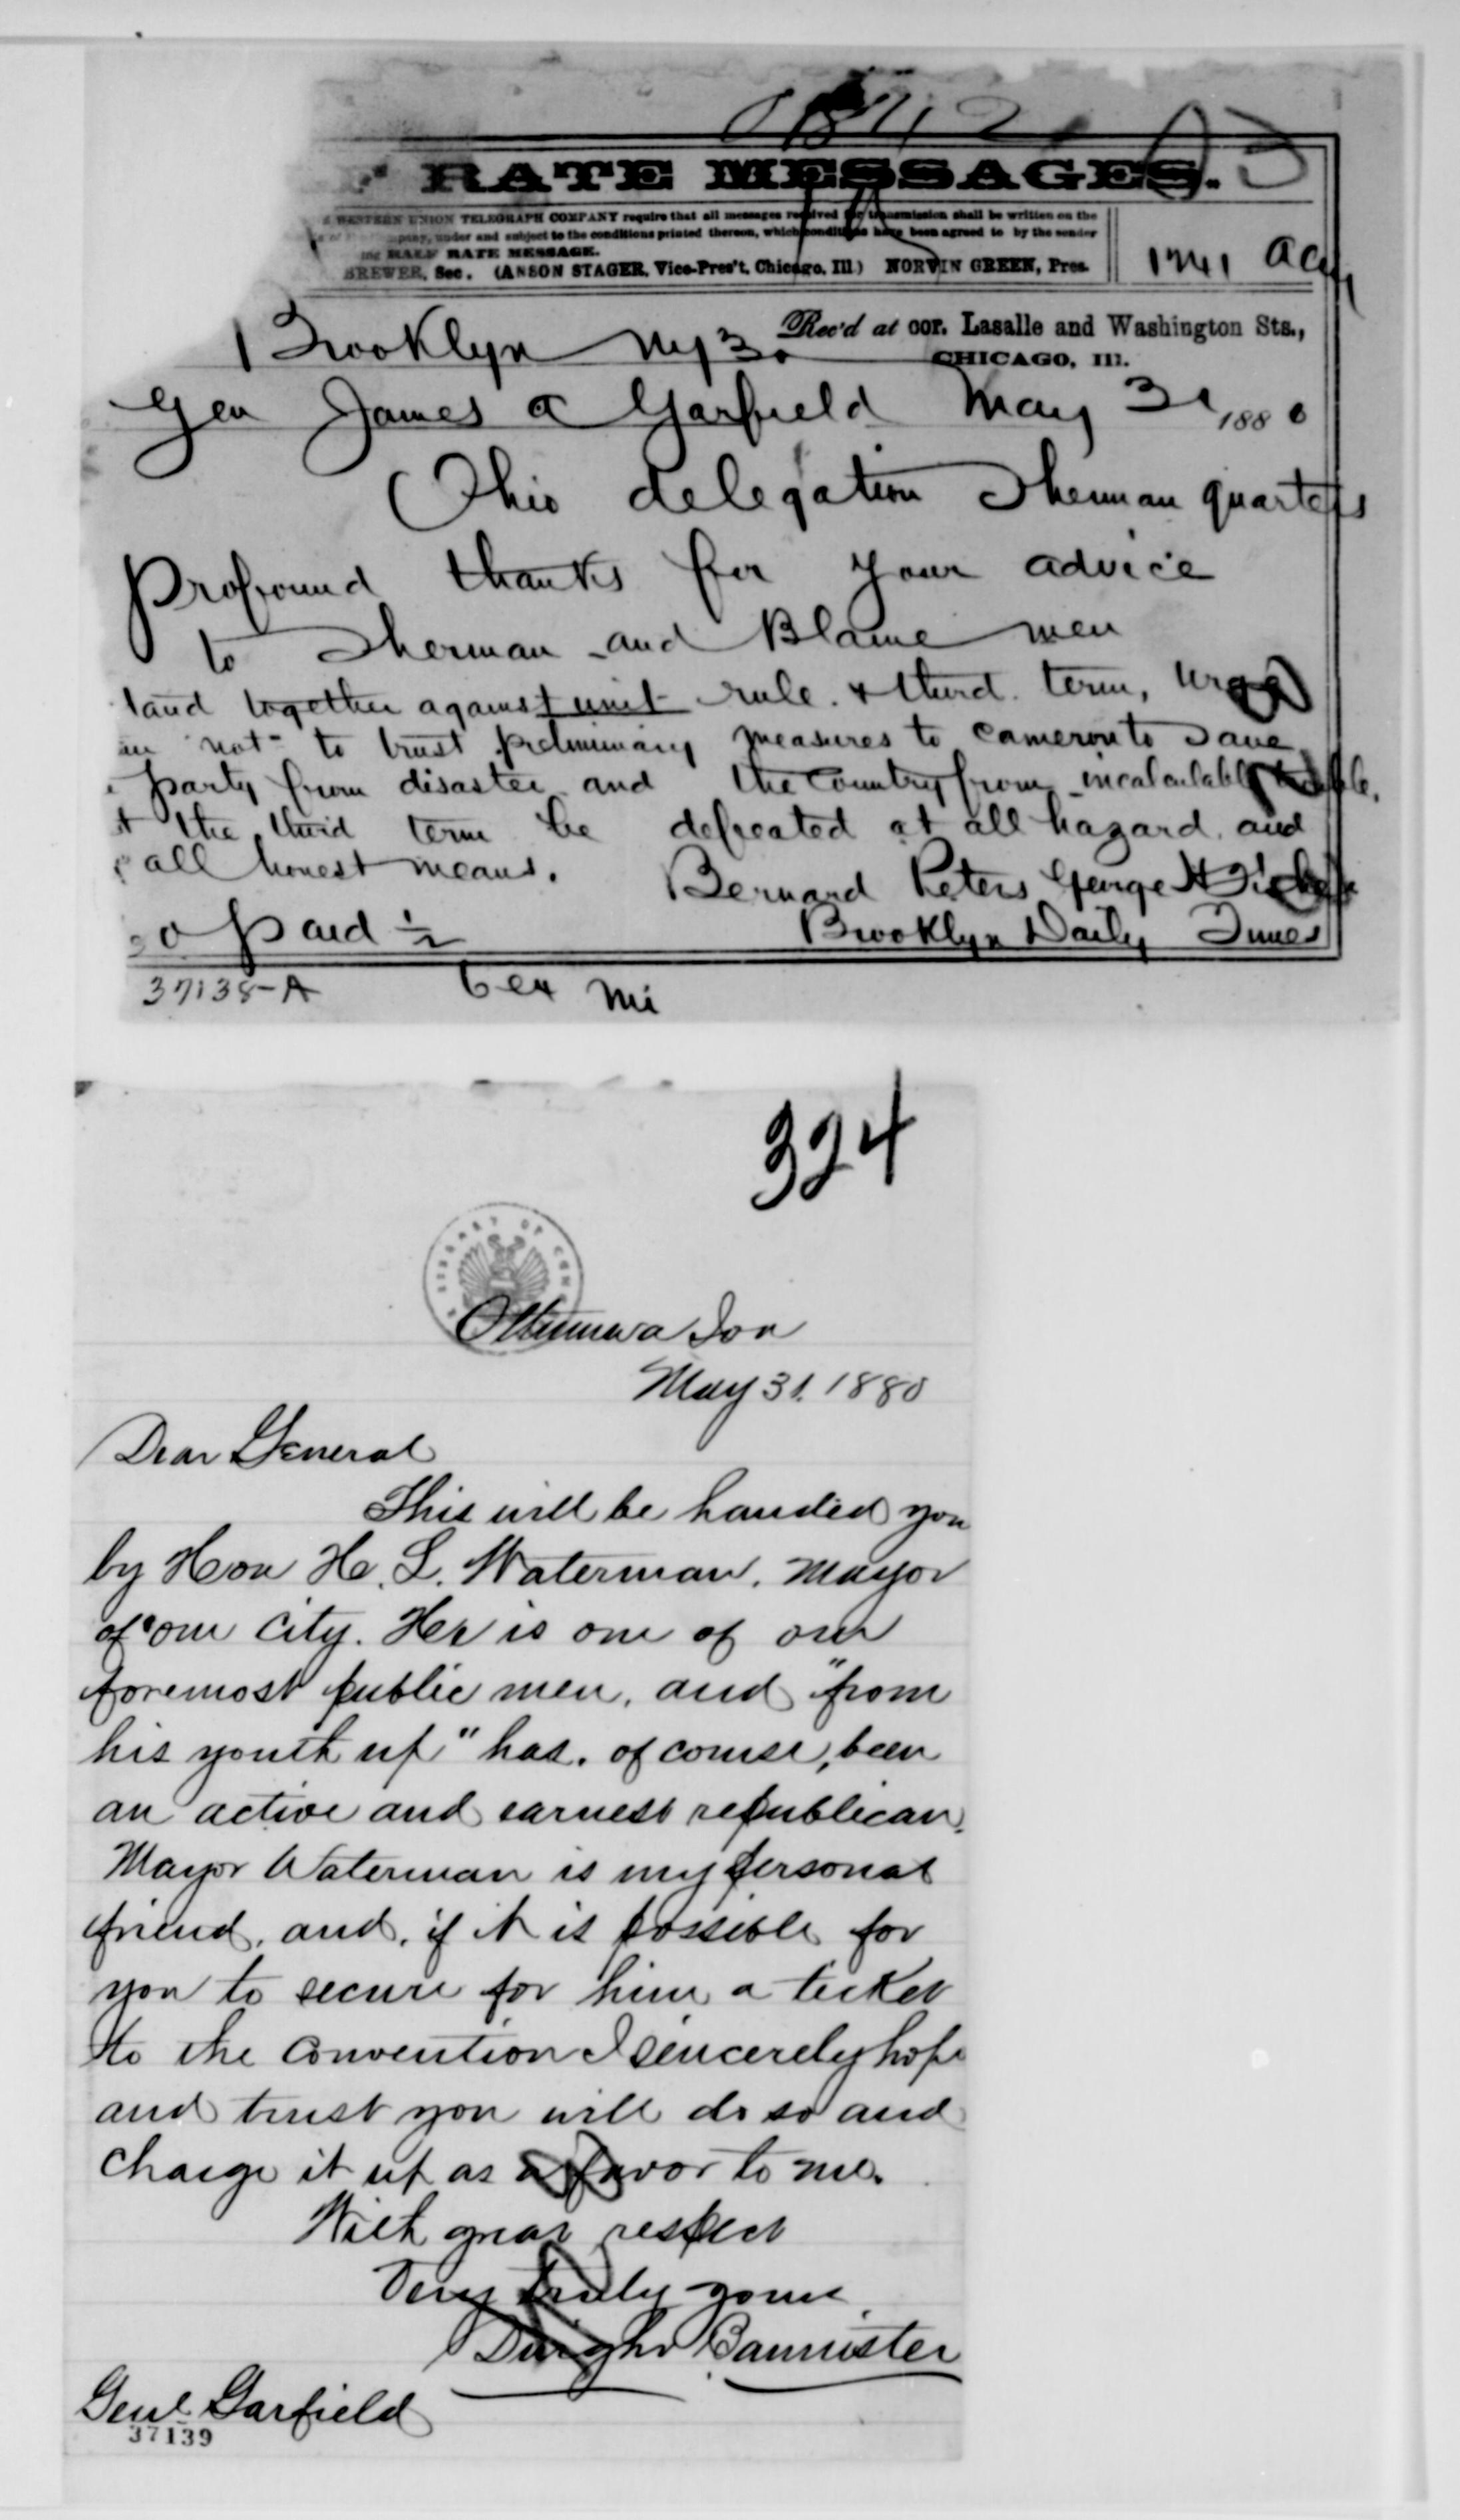 RATE MESSAGES.
WESTERN UNION TELEGRAPH COMPANY require that all messages received for transmission shall be written on the
under and subject to the conditions printed thereon, which conditions have been agreed to by the sender
HALF RATE MESSAGE.
BREWER, Sec. (ANSON STAGER, Vice-Pres't, Chicago, Ill) NORVIN GREEN, Pres.
Brooklyn Ny 3
Rec'd at cor. Lasalle and Washington Sts.,
CHICAGO, Ill.
Gen James a Garfield May 31 1880
Ohio delegation Sherman quarters
Profound thanks for your advice
to Sherman and Blaine men
tand together against unit rule. & third term, urge
not to trust preliminary measures to cameron to Save
party from disaster and the Country from incalculable
the third term be defeated at all hazard and
all honest means. Bernard Peters George H
Paid 1/2 Brooklyn Daily Times
37138-A
324
LIBRARY OF CON
Ottumwa Ioa
May 31. 1880
Dear General
This will be handed you
by Hon H. L. Waterman, Mayor
of our City. He is one of our
foremost public men, and "from
his youth up" has, of course, been
an active and earnest republican.
Mayor Waterman is my personal
friend, and, if it is possible for
you to secure for him a ticket
to the Convention I sincerely hope
and trust you will do so and
charge it up as a favor to me.
With great respect
Very truly yours
Dwight Bannister
Genl Garfield
37139